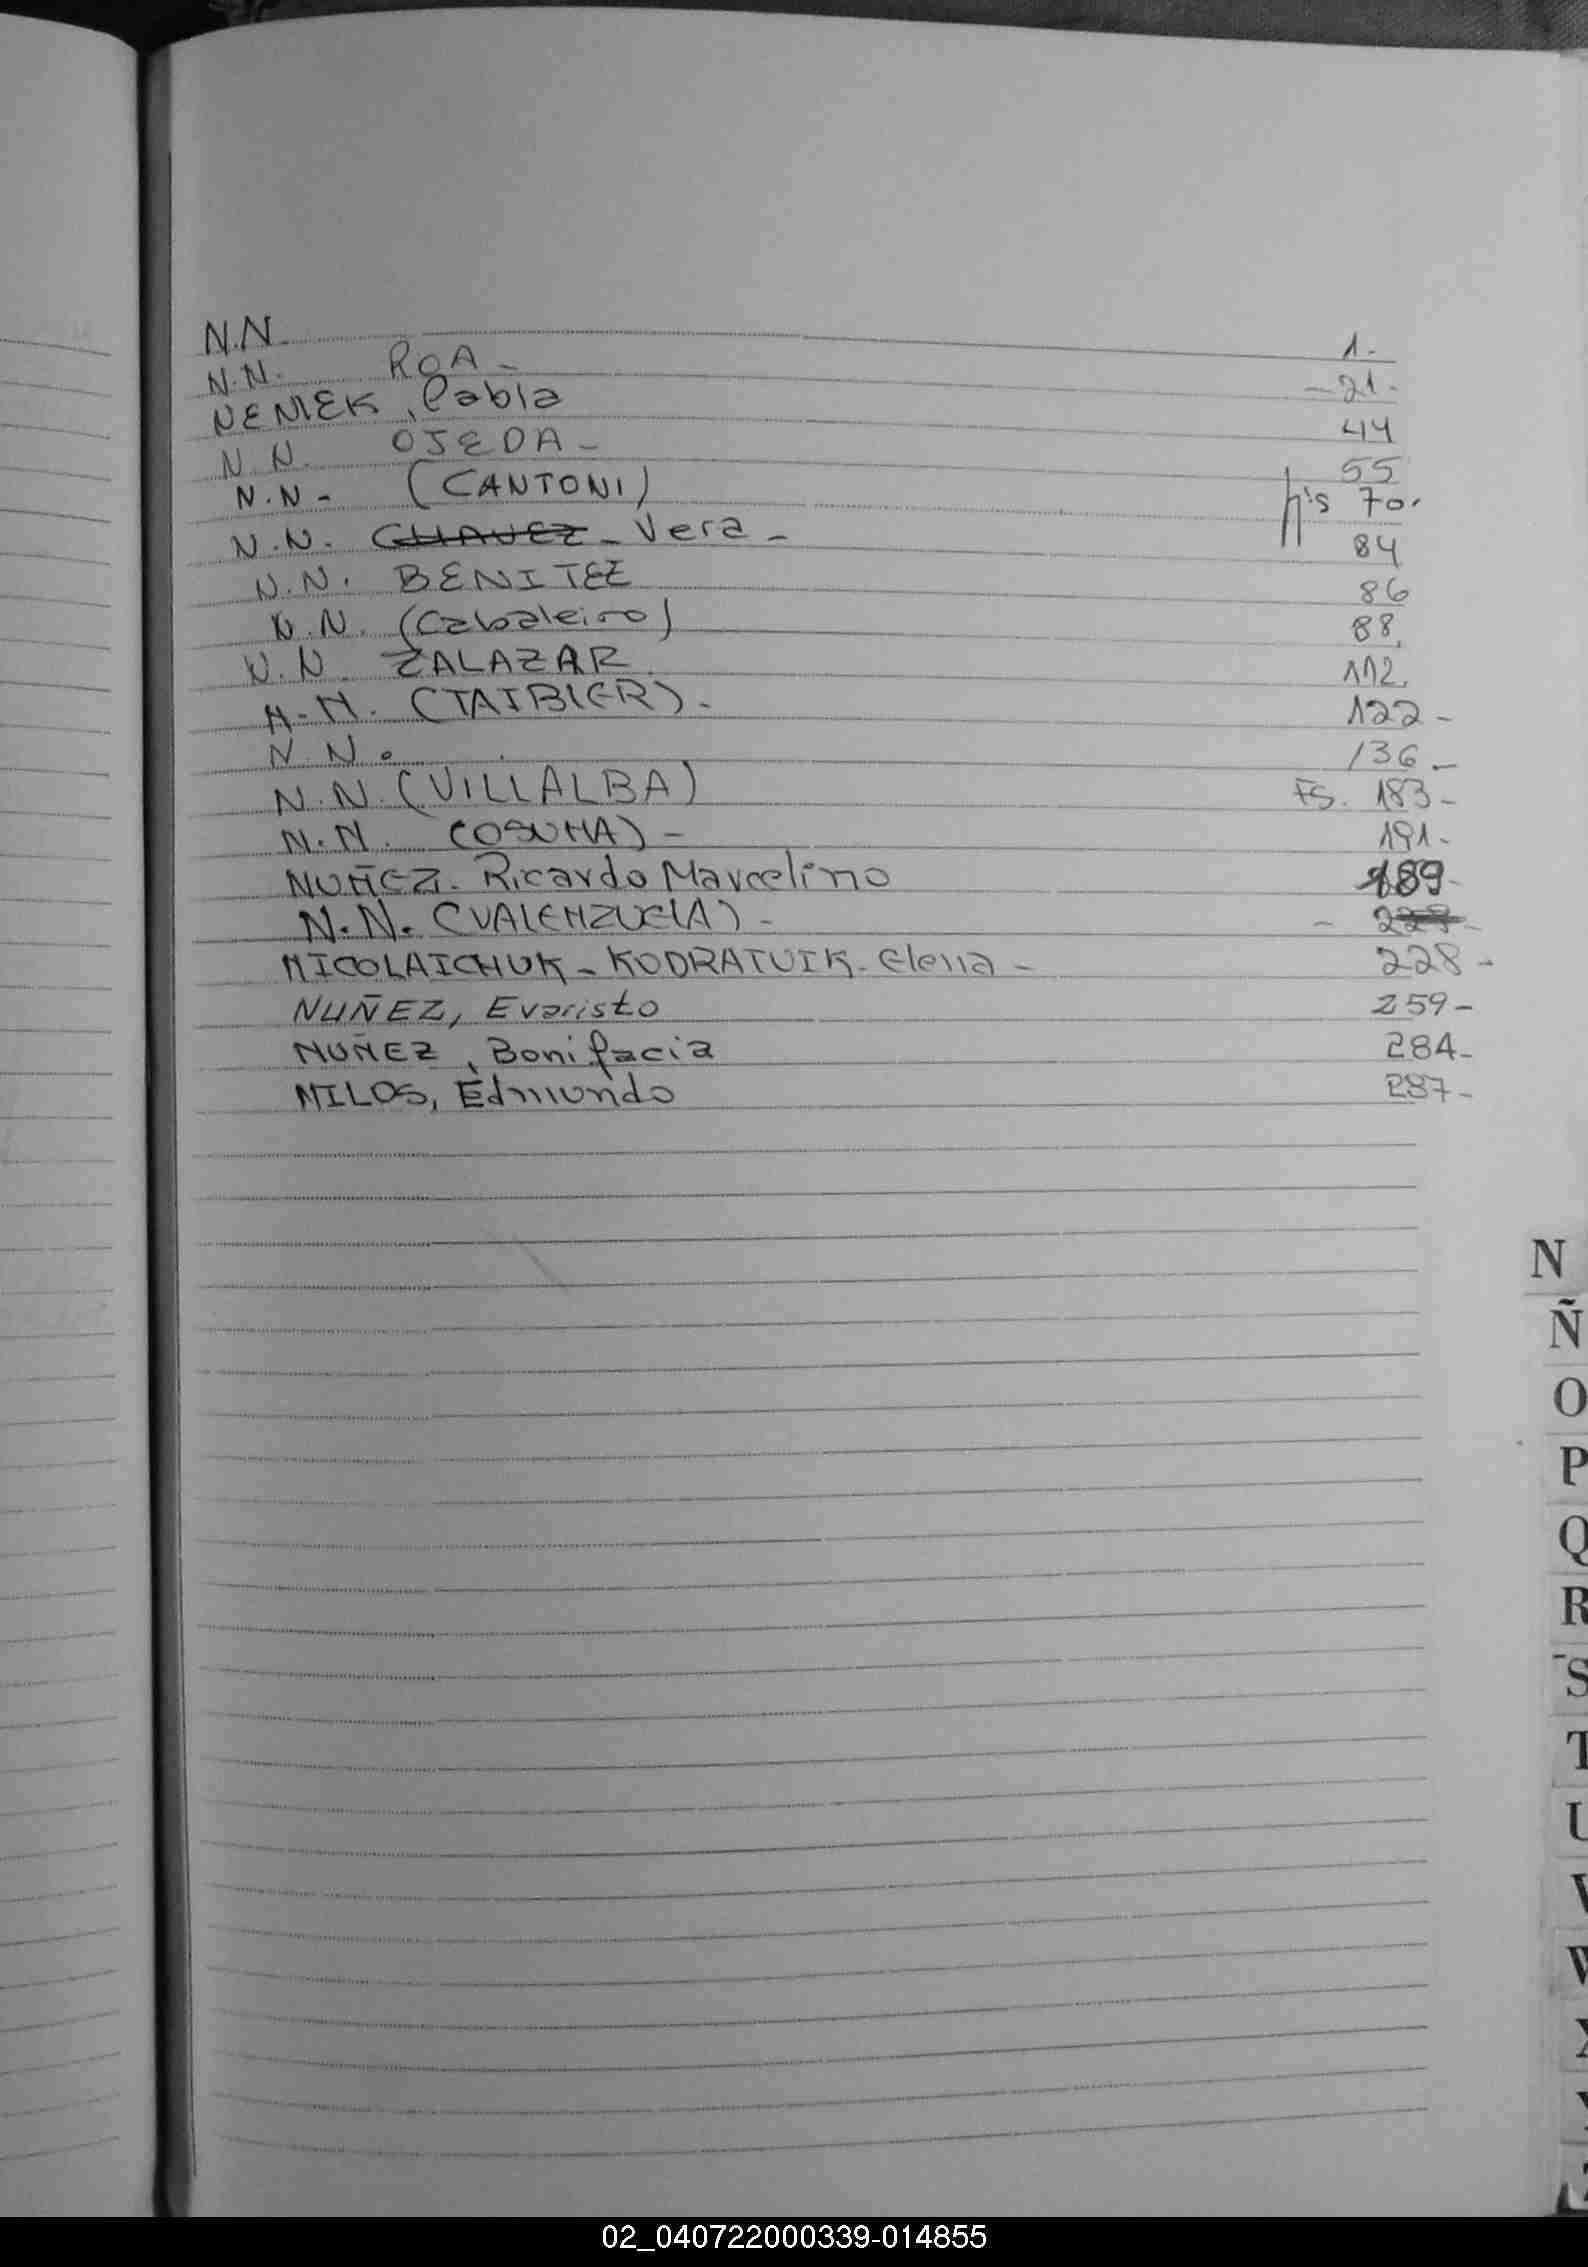 N.N. 1.
N.N. ROA - - 21.
NEMEK, Pabla 44
N.N. OJEDA - 55
N.N - (CANTONI) h's 70.
N.N. CHAVEZ - Vera - 84
N.N. BENITEZ 86
N.N. (Cabaleiro) 88.
N.N. ZALAZAR. 112.
N.N. (TAIBIER). 122 -
N.N. 136 -
N.N. (VILLALBA) FS. 183 -
N.N. (OSUNA) - 191 -
NUÑEZ. Ricardo Marcelino 189 -
N.N. (VALENZUELA) - -
NICOLAICHUK - KODRATUIK - Elena - 228 -
NUÑEZ, Evaristo 259 -
NUÑEZ, Bonifacia 284 -
NILOS, Edmundo 287 -
N
Ñ
O
P
Q
R
S
T
U
V
W
X
Y
Z
02_040722000339-014855